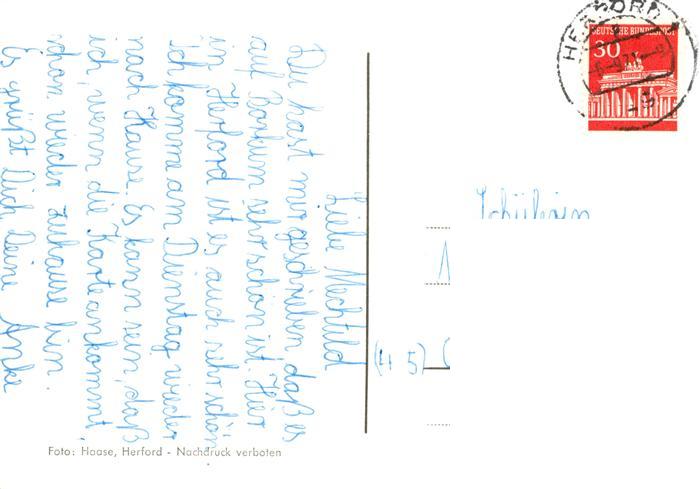 Liebe Mechtild
Du hast mir geschrieben, daß es
auf Borkum sehr schön ist. Hier
in Herford ist es auch sehr schön
Ich komme am Dienstag wieder
nach Hause. Es kann sein, daß
ich, wenn die Karte ankommt,
schon wieder zuhause bin.
Es grüßt Dich Deine Anke
Foto: Haase, Herford - Nachdruck verboten
DEUTSCHE BUNDESPOST
30
HERFORD
Schülerin